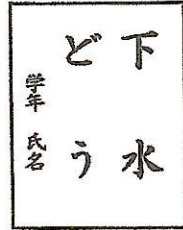 下水
どう
学年 氏名